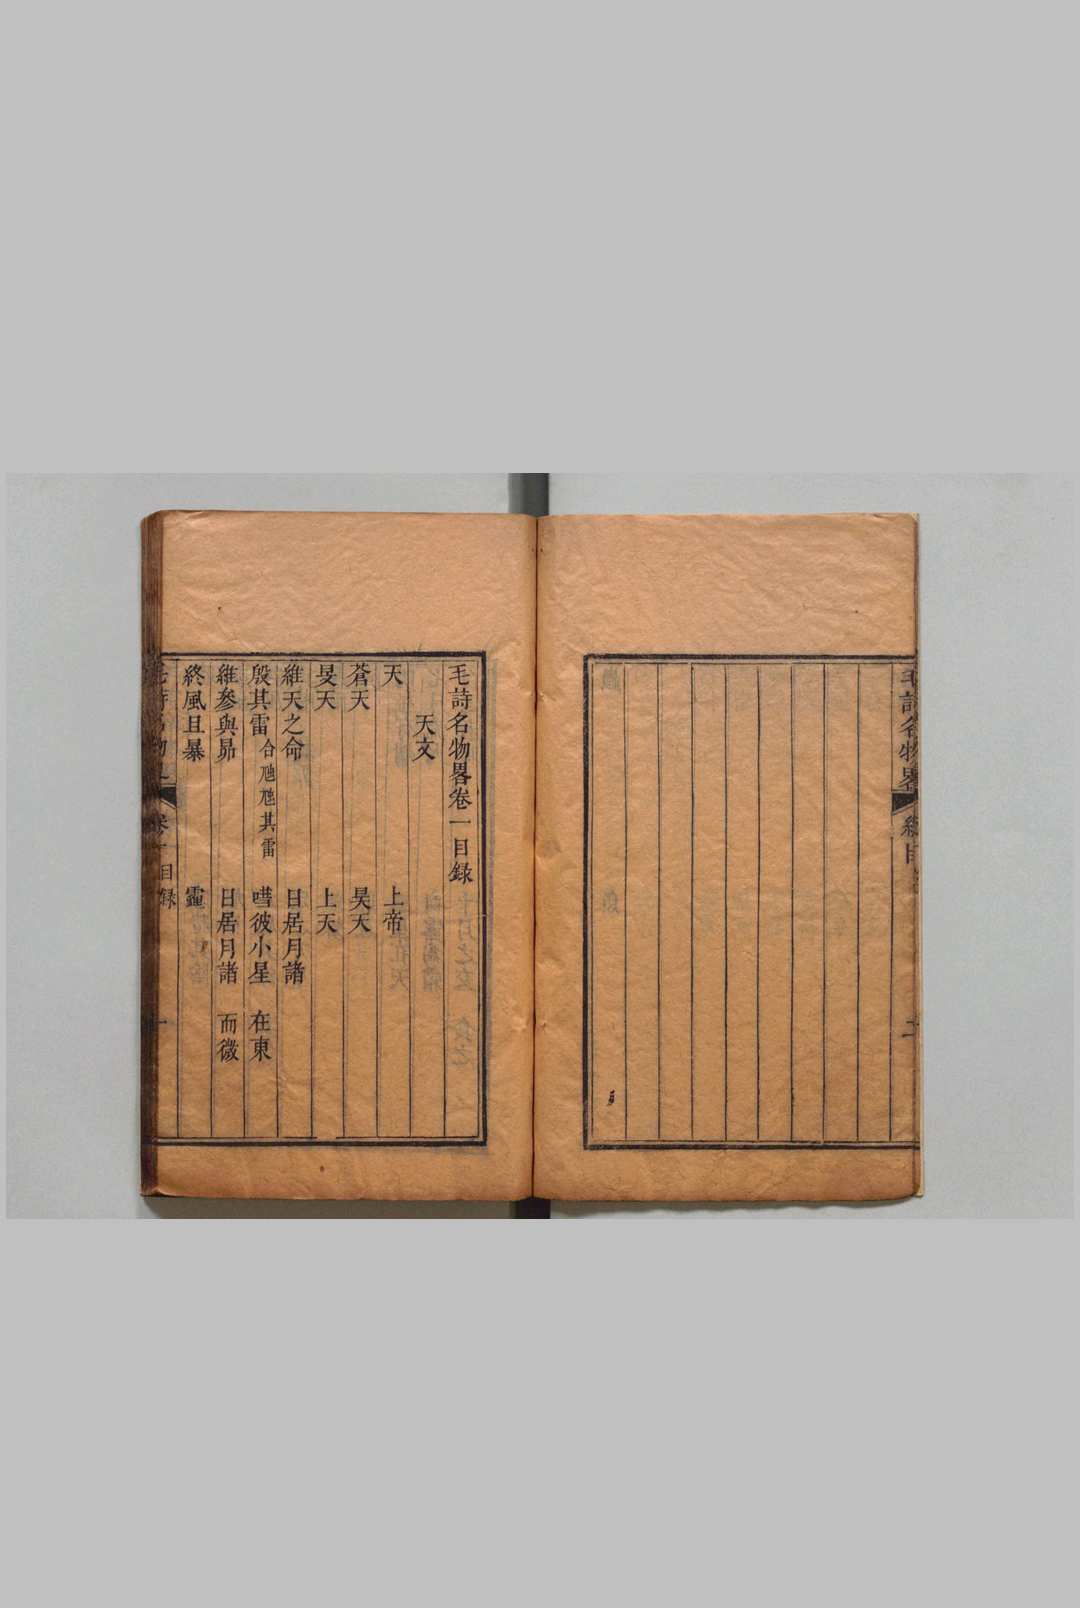 毛詩名物畧
二
毛詩名物畧卷一目錄
天文
天 上帝
蒼天 昊天
旻天 上天
維天之命 日居月諸
殷其雷 合虺虺其雷 嘒彼小星 在東
維參與昴 日居月諸 而微
終風且暴 霾
目錄
一